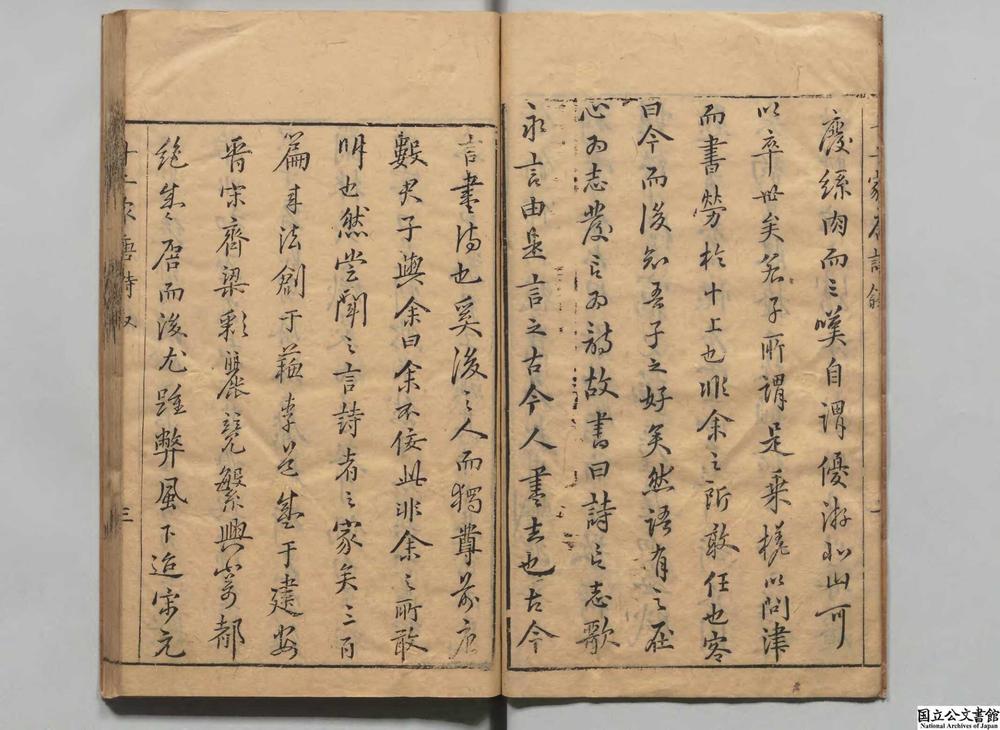 十二家唐詩叙
廢絲肉而之嘆自謂優游北山可
以卒世矣君子所謂是乘槎以問津
而書勞於十上也非余之所敢任也客
曰今而後知吾子之好矣然語有之在
心為志發言為詩故書曰詩言志歌
永言由是言之古今人盡言也古今
言盡詩也奚後之人而獨尊前唐
數君子與余曰余不佞此非余之所敢
明也然嘗聞之言詩者之家矣三百
篇來法創于蘇李 盛于建安
晉宋齊梁彩麗競繁興寄都
絕盛唐而後尤踵弊風下迨宋元
十二家唐詩叙
三
国立公文書館
National Archives of Japan